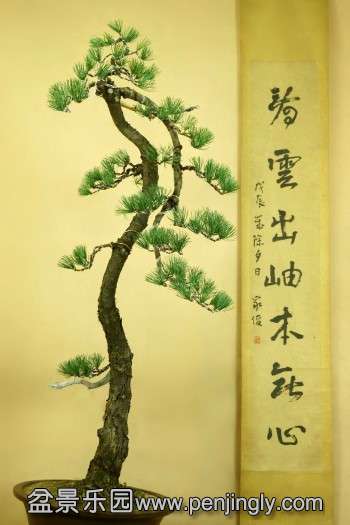 雲出岫本無心
戊辰歲除夕日
盆景乐园www.penjingly.com